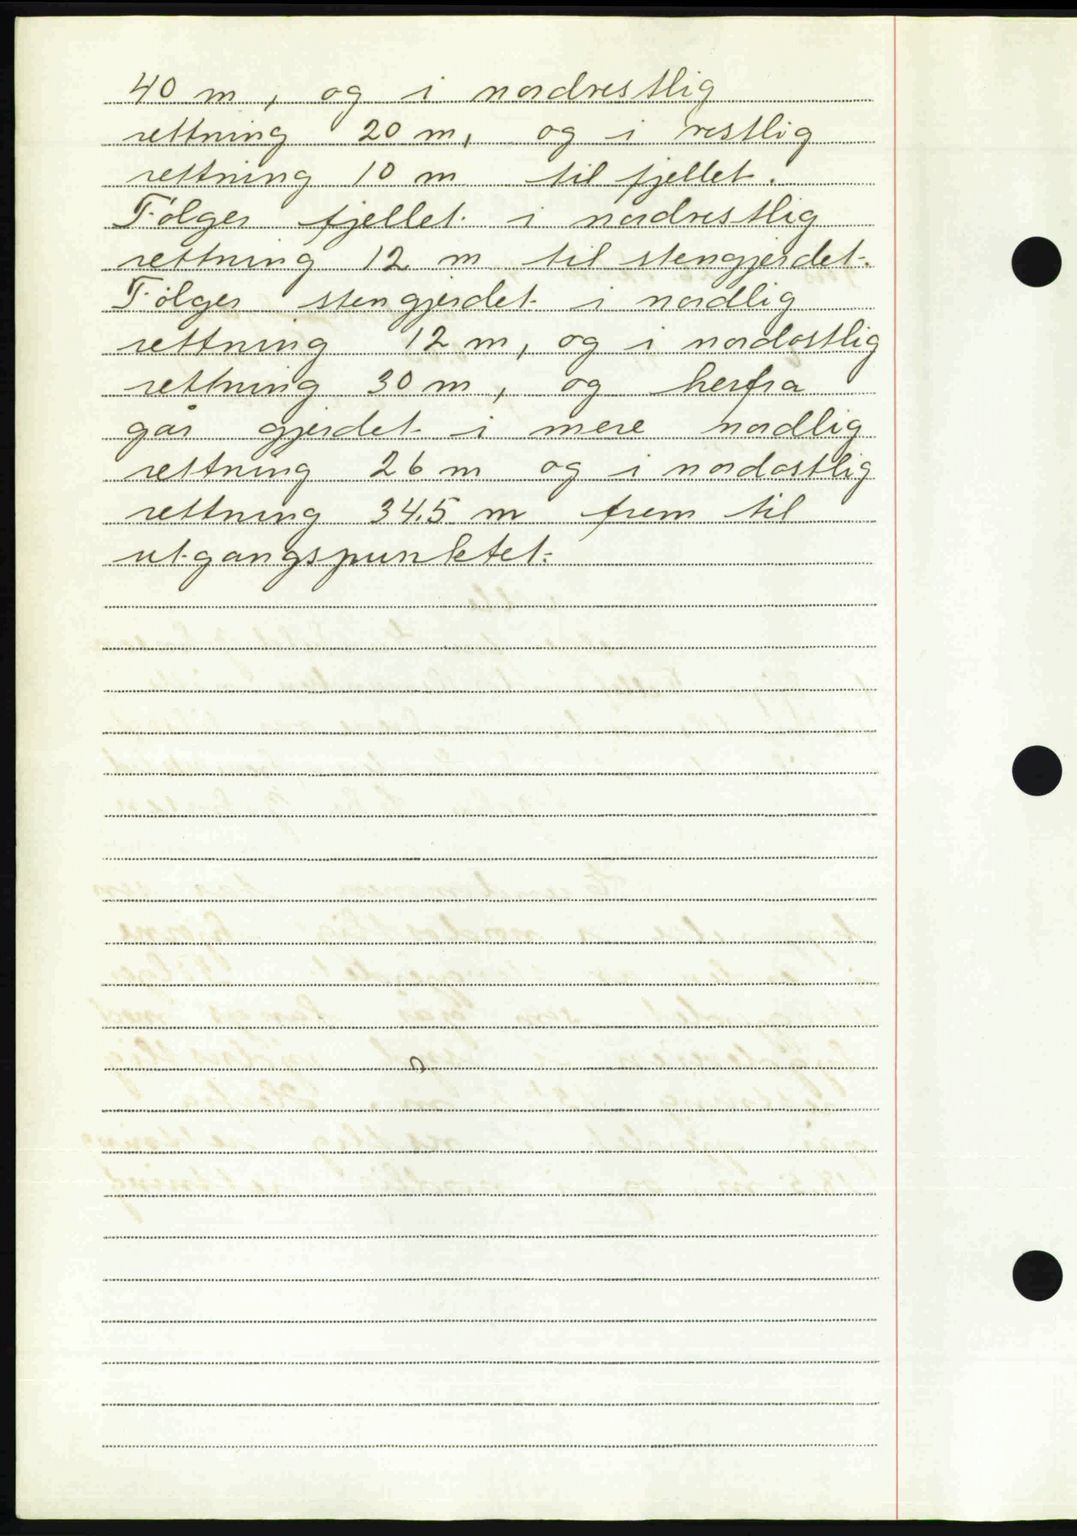 40 m, og i nordvestlig
rettning 20 m, og i vestlig
rettning 10 m til fjellet.
Følger fjellet i nordvestlig
rettning 12 m til stengjerdet.
Følger stengjerdet i nordlig
rettning 12 m, og i nordostlig
rettning 30 m, og herfra
går gjerdet i mere nordlig
rettning 26 m og i nordostlig
rettning 34.5 m frem til
utgangspunktet.